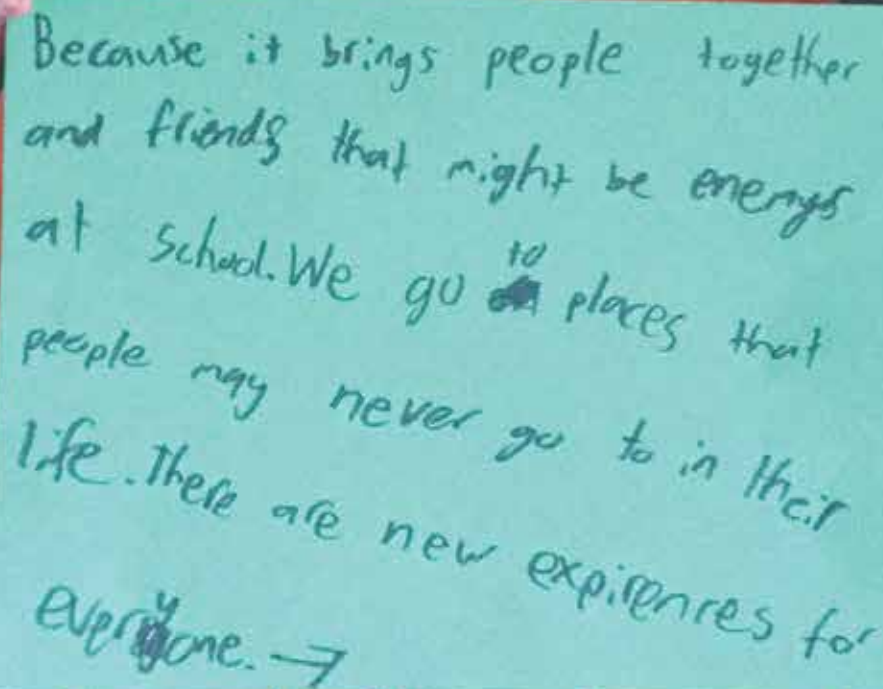 Because it brings people together
and friends that might be enemys
at school. We go to places that
people may never go to in their
life. There are new expirences for
everyone. →